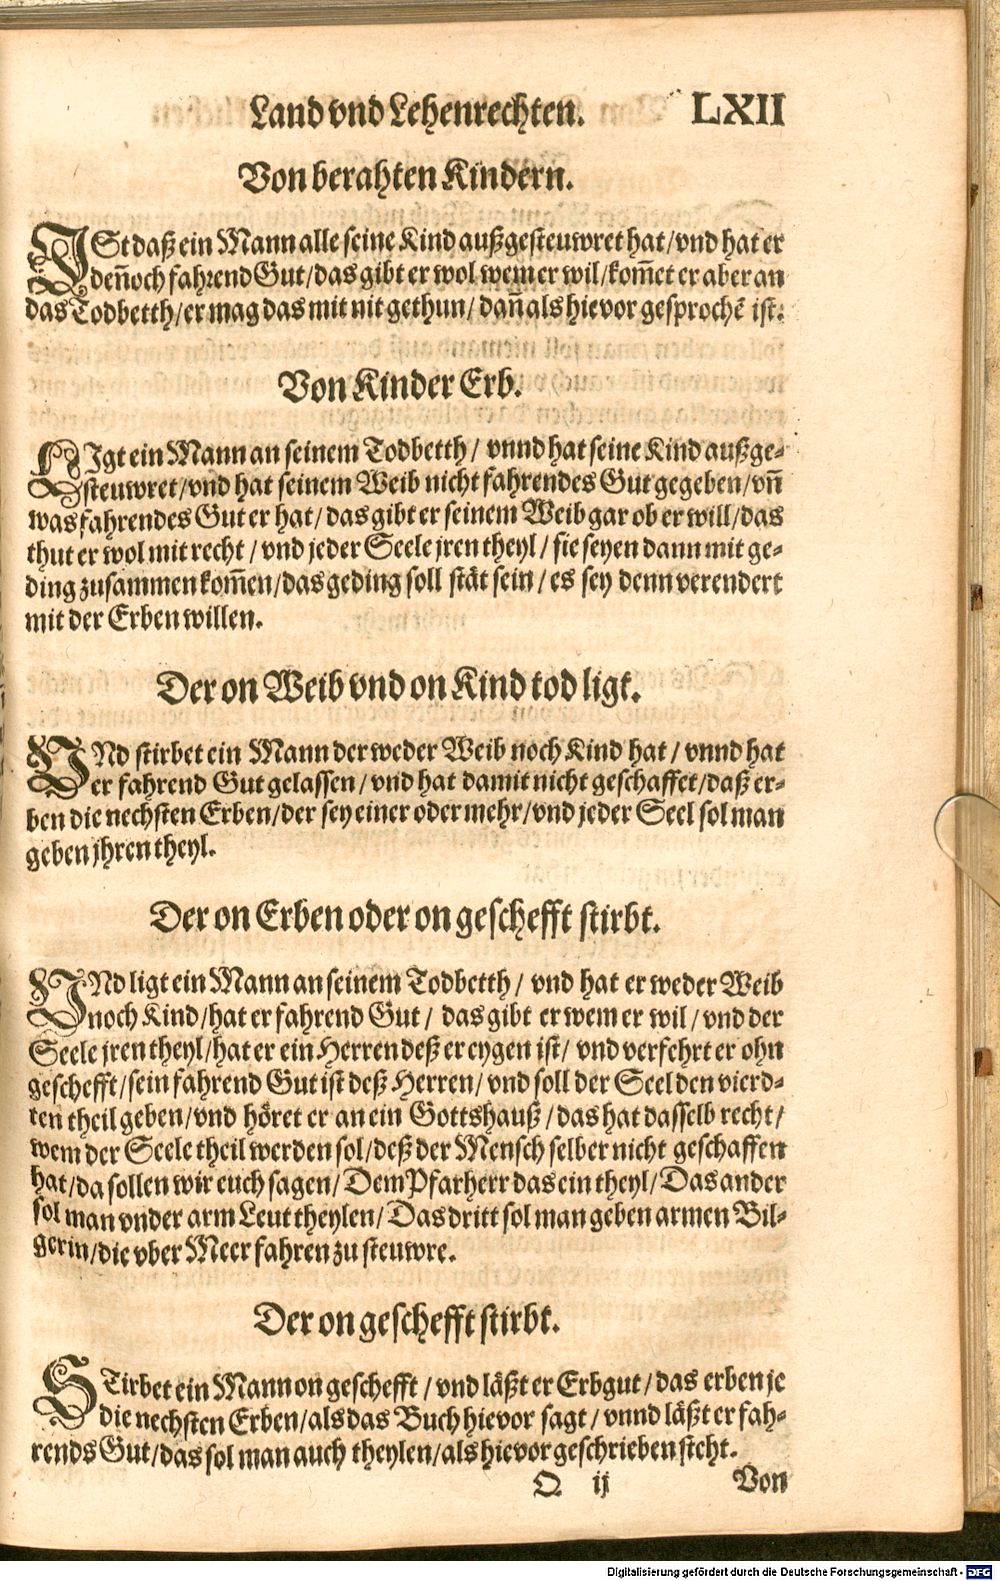 Land vnd Lehenrechten. LXII
Von berahten Kindern.
ISt daß ein Mann alle seine Kind außgesteuwret hat/ vnd hat er
deñoch fahrend Gut/ das gibt er wol wem er wil/ kom̃et er aber an
das Todbetth/ er mag das mit nit gethun/ dañ als hievor gesprochẽ ist.
Von Kinder Erb.
LIgt ein Mann an seinem Todbetth/ vnnd hat seine Kind außge-
steuwret/ vnd hat seinem Weib nicht fahrendes Gut gegeben/ vñ
was fahrendes Gut er hat/ das gibt er seinem Weib gar ob er will/ das
thut er wol mit recht/ vnd jeder Seele jren theyl/ sie seyen dann mit ge-
ding zusammen kom̃en/ das geding soll stät sein/ es sey denn verendert
mit der Erben willen.
Der on Weib vnd on Kind tod ligt.
VNd stirbet ein Mann der weder Weib noch Kind hat/ vnnd hat
er fahrend Gut gelassen/ vnd hat damit nicht geschaffet/ daß er-
ben die nechsten Erben/ der sey einer oder mehr/ vnd jeder Seel sol man
geben jhren theyl.
Der on Erben oder on geschefft stirbt.
VNd ligt ein Mann an seinem Todbetth/ vnd hat er weder Weib
noch Kind/ hat er fahrend Gut/ das gibt er wem er wil/ vnd der
Seele jren theyl/ hat er ein Herren deß er eygen ist/ vnd verfehrt er ohn
geschefft/ sein fahrend Gut ist deß Herren/ vnd soll der Seel den vierd-
ten theil geben/ vnd höret er an ein Gottshauß/ das hat dasselb recht/
wem der Seele theil werden sol/ deß der Mensch selber nicht geschaffen
hat/ da sollen wir euch sagen/ Dem Pfarherr das ein theyl/ Das ander
sol man vnder arm Leut theylen/ Das dritt sol man geben armen Bil-
gerin/ die vber Meer fahren zu steuwre.
Der on geschefft stirbt.
STirbet ein Mann on geschefft/ vnd läßt er Erbgut/ das erben je
die nechsten Erben/ als das Buch hievor sagt/ vnnd läßt er fah-
rends Gut/ das sol man auch theylen/ als hievor geschrieben steht.
O ij Von
Digitalisierung gefördert durch die Deutsche Forschungsgemeinschaft - DFG